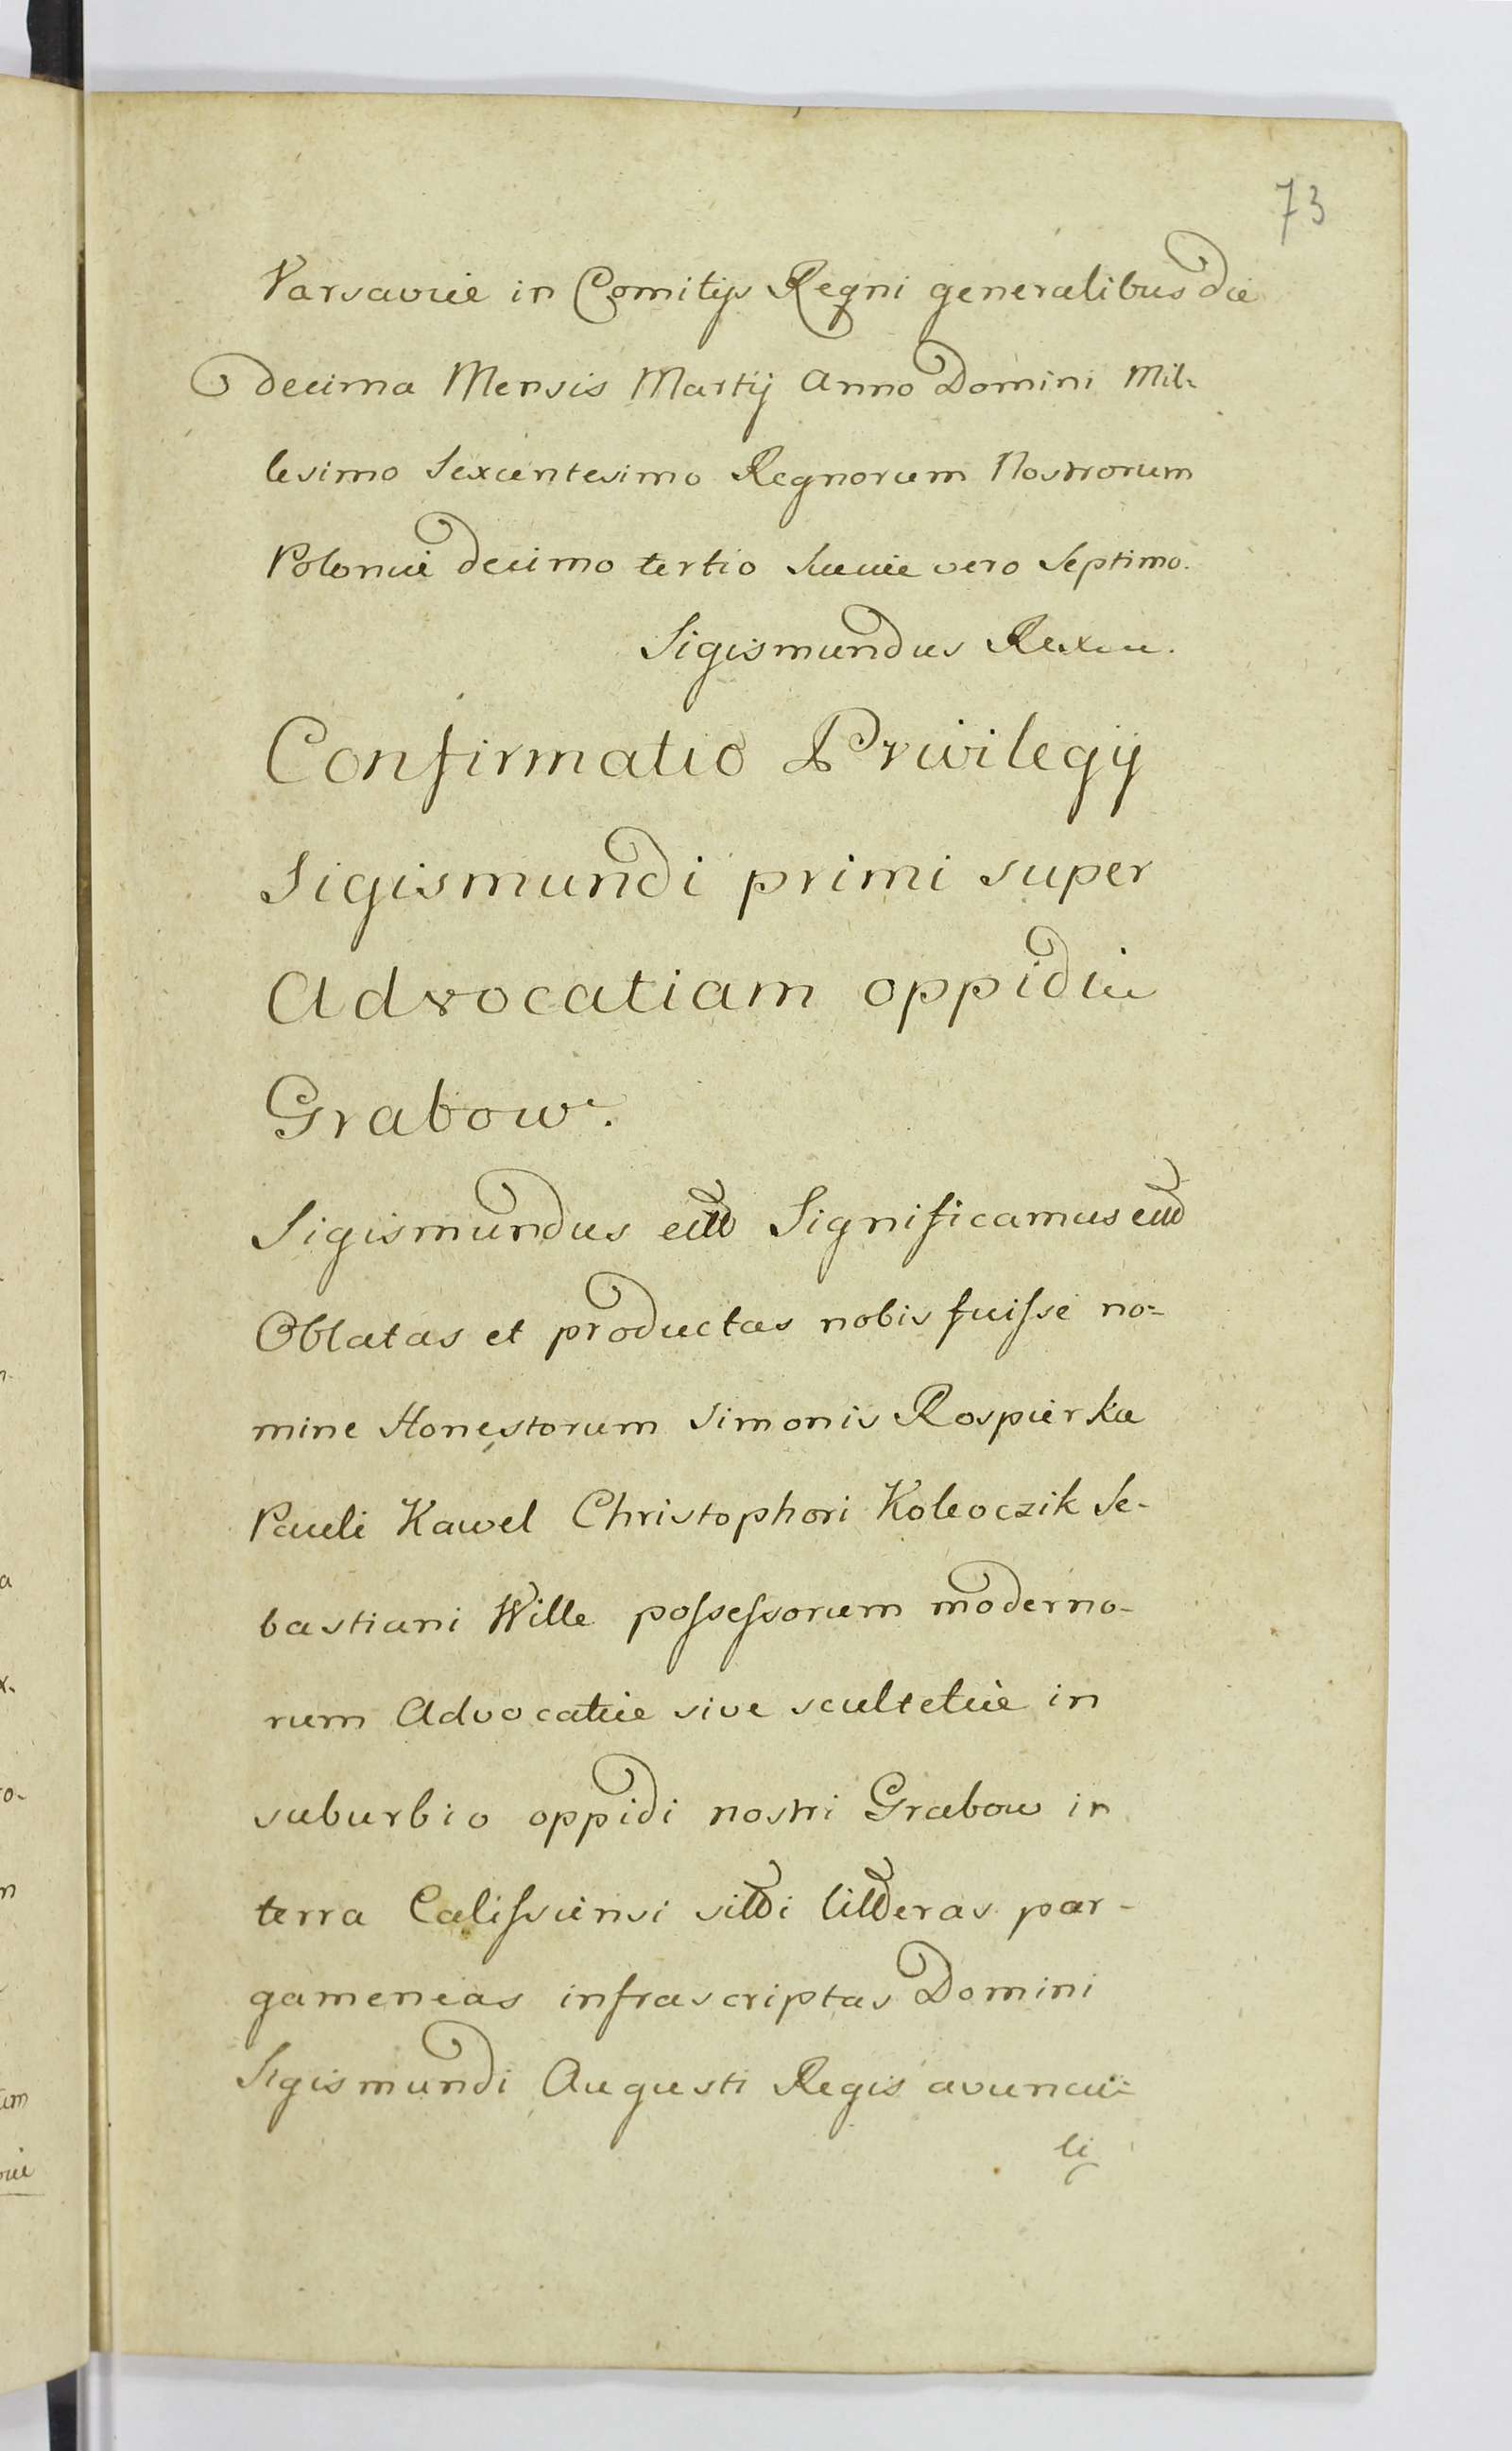 73
Varsaviæ in Comitijs Regni generalibus die
decima Mensis Martij Anno Domini Mil-
lesimo Sexcentesimo Regnorum Nostrorum
Poloniæ decimo tertio Sueciæ vero Septimo.
Sigismundus Rex
Confirmatio Privilegij
Sigismundi primi super
Advocatiam oppidi
Grabow.
Sigismundus ettt Significamus ettt
Oblatas et productas nobis fuisse no=
mine Honestorum Simonis Rospierka
Pauli Kawel Christophori Koleoczik Se-
bastiani Wille possessorum moderno-
rum Advocatiæ sive scultetiæ in
suburbio oppidi nostri Grabow in
terra Calissiensi sitti litteras par-
gameneas infrascriptas Domini
Sigismundi Augusti Regis avuncu=
li